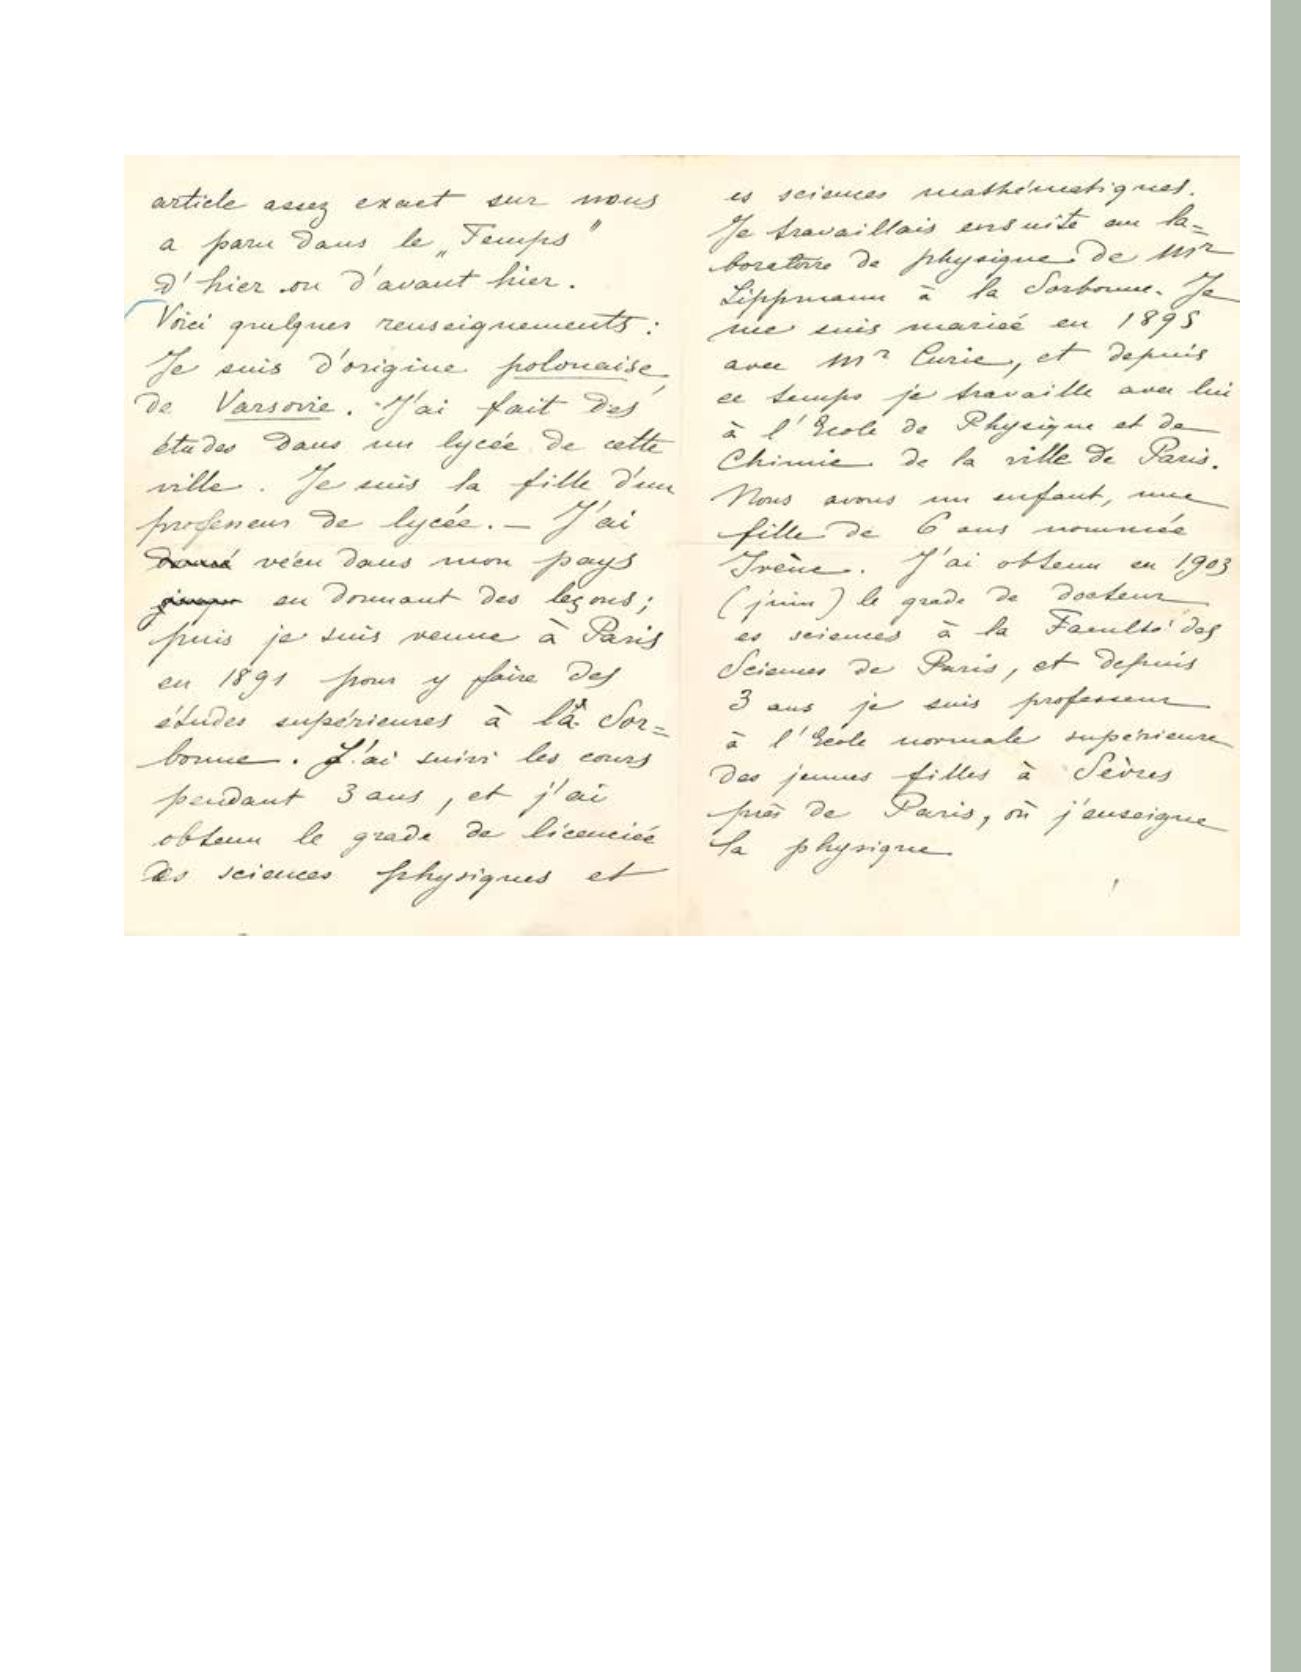 article assez exact sur nous
a paru dans le „Temps"
d'hier ou d'avant hier.
Voici quelques renseignements :
Je suis d'origine polonaise,
de Varsovie. J'ai fait des
études dans un lycée de cette
ville. Je suis la fille d'un
professeur de lycée. — J'ai
donné vécu dans mon pays
en donnant des leçons ;
puis je suis venue à Paris
en 1891 pour y faire des
études supérieures à la Sor=
bonne. J'ai suivi les cours
pendant 3 ans, et j'ai
obtenu le grade de licenciée
ès sciences physiques et
es sciences mathématiques.
Je travaillais ensuite au la=
boratoire de physique de Mr
Lippmann à la Sorbonne. Je
me suis mariée en 1895
avec Mr Curie, et depuis
ce temps je travaille avec lui
à l'Ecole de Physique et de
Chimie de la ville de Paris.
Nous avons un enfant, une
fille de 6 ans nommée
Irène. J'ai obtenu en 1903
(juin) le grade de docteur
es sciences à la Faculté des
Sciences de Paris, et depuis
3 ans je suis professeur
à l'Ecole normale supérieure
des jeunes filles à Sèvres
près de Paris, où j'enseigne
la physique